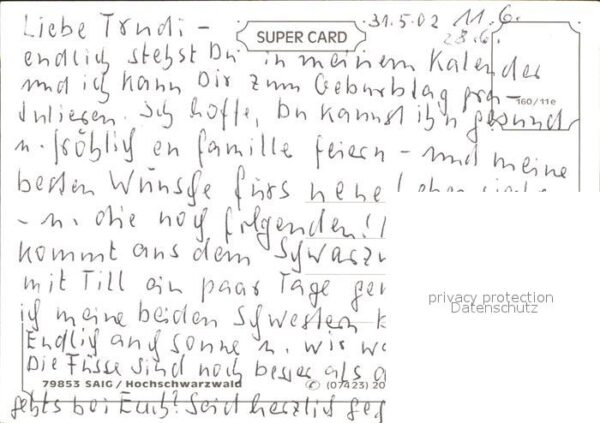 31.5.02 11.6.
28.6.
Liebe Trudi -
SUPER CARD
endlich stehst Du in meinem Kalender
und ich kann Dir zum Geburtstag gra-
160/11e
tulieren. Ich hoffe, Du kannst ihn gesund
u. fröhlich en famille feiern - und meine
besten Wünsche fürs neue
- u. die noch folgenden!
kommt aus dem Schwarzw
mit Till ein paar Tage
privacy protection
Datenschutz
ich meine beiden Schwestern
Endlich auch Sonne u. wir
Die Füsse sind noch besser als
79853 SAIG / Hochschwarzwald
(07423) 20
gehts bei Euch? Seid herzlich geg